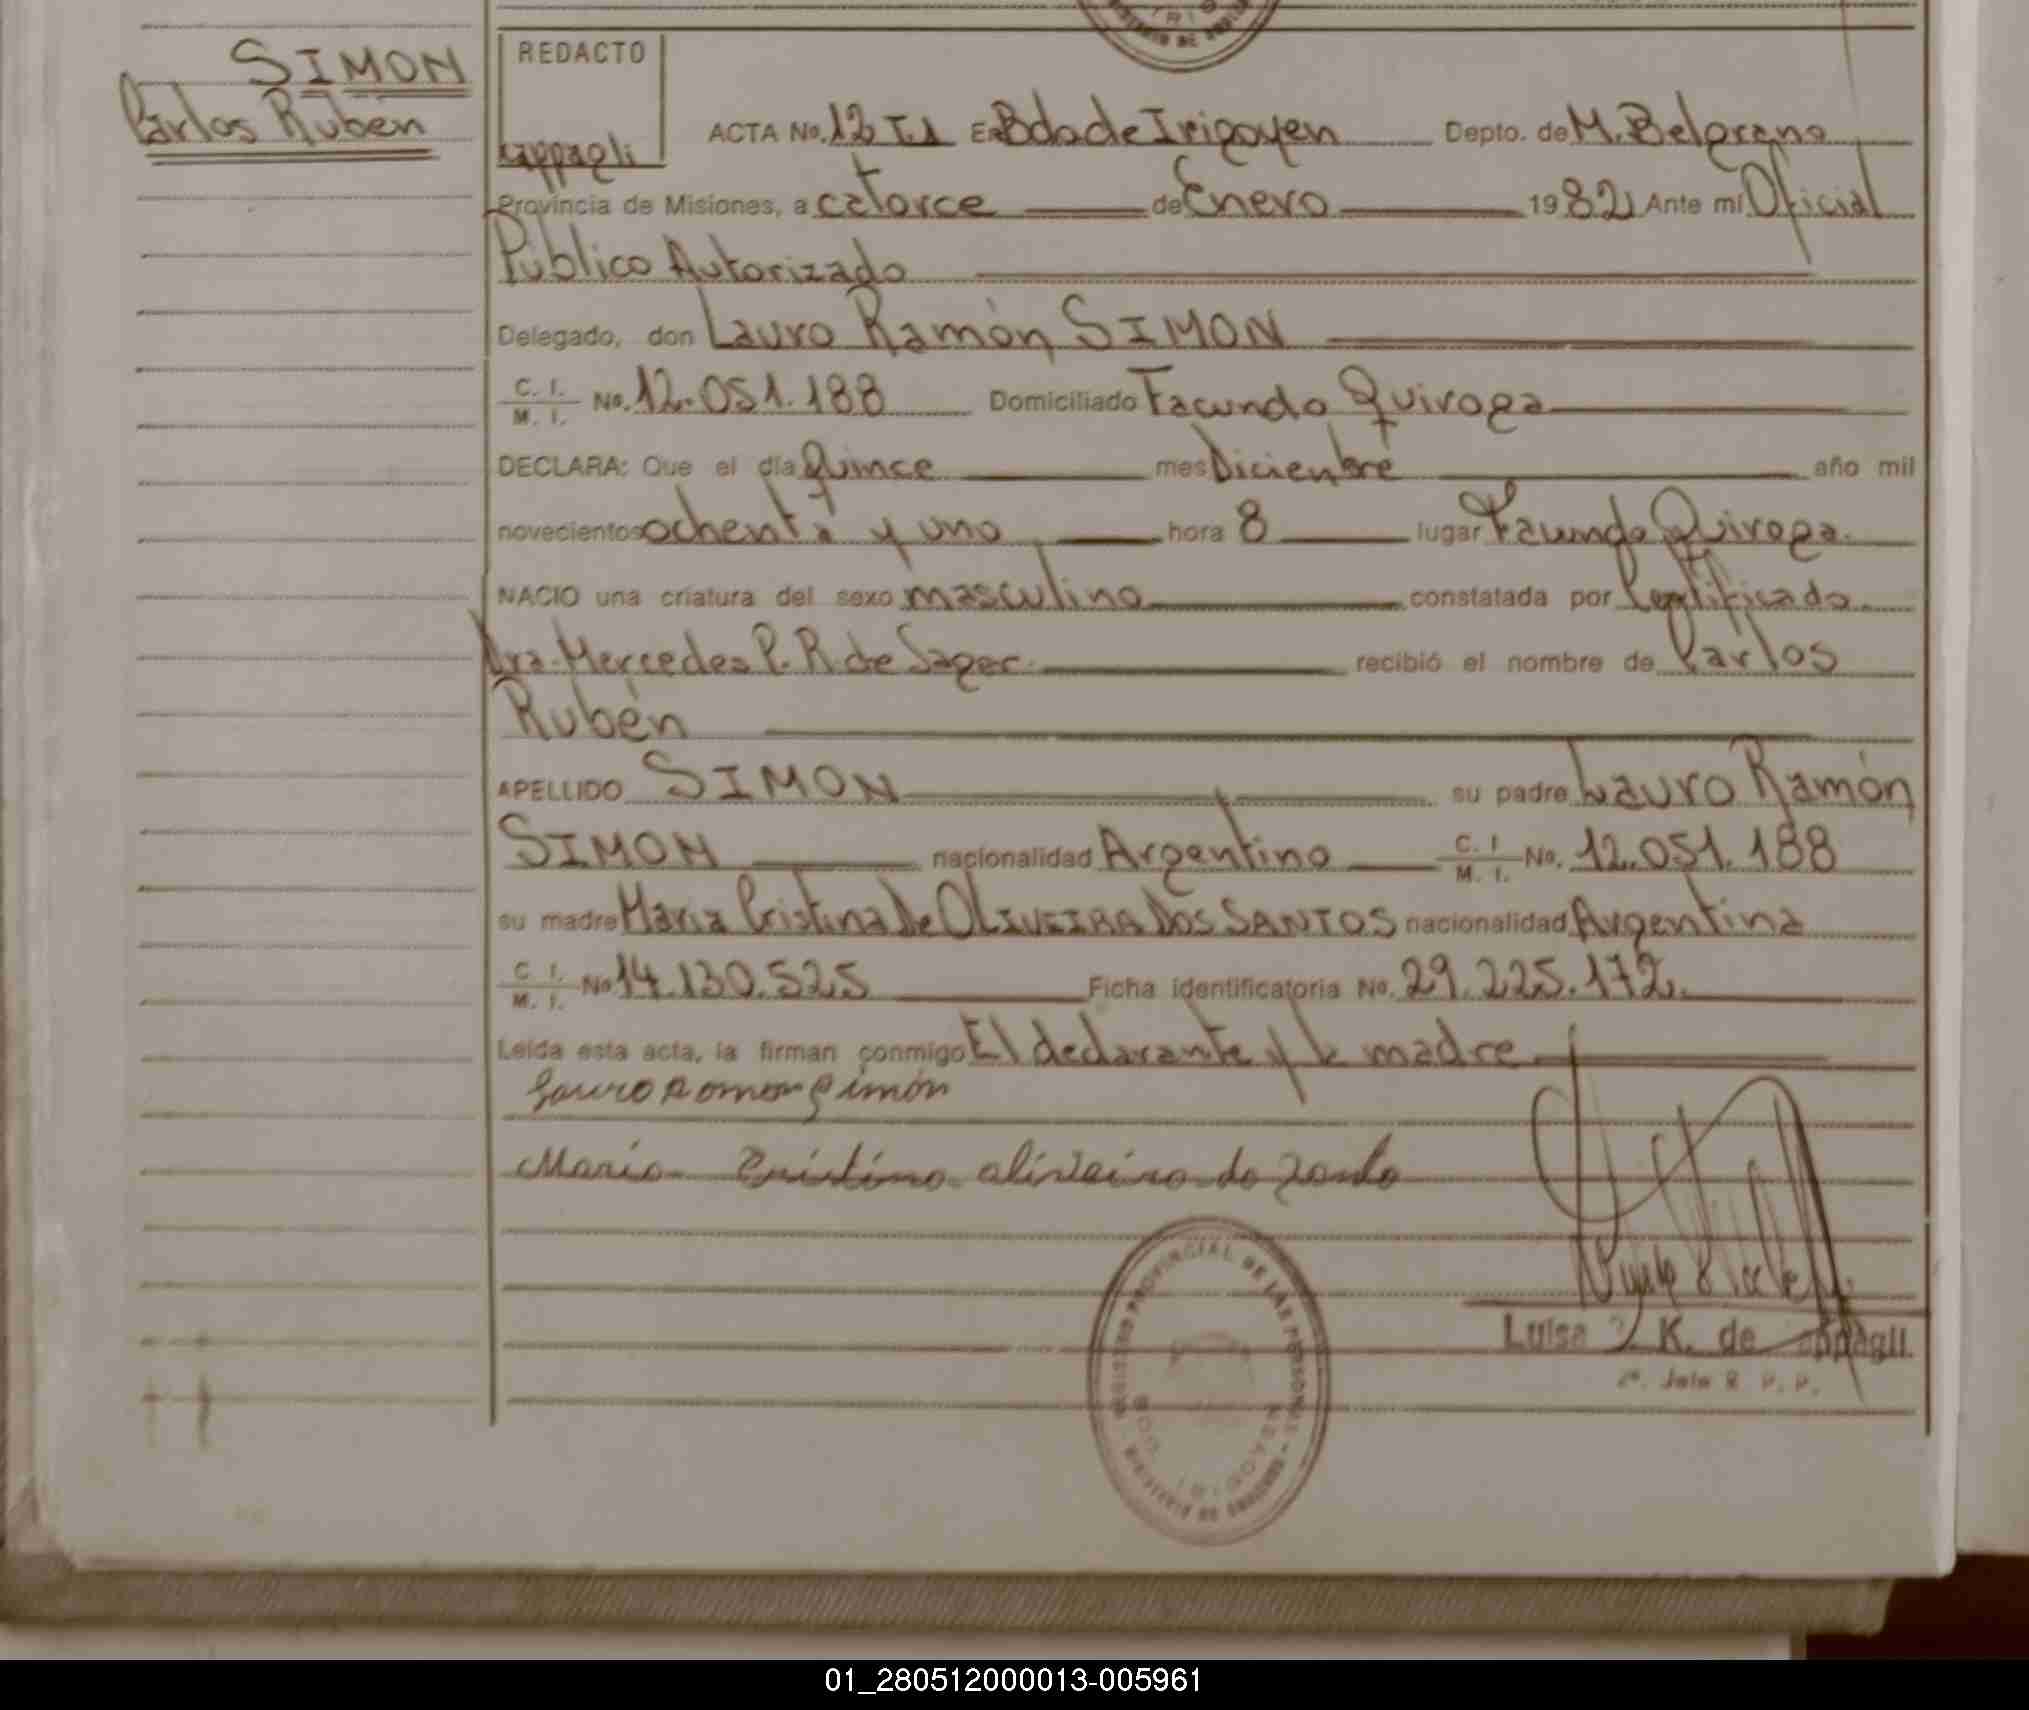 SIMON
Carlos Rubén
REDACTO
cappagli
ACTA No. 12 T1 En Bdo de Irigoyen Depto. de M. Belgrano
Provincia de Misiones, a catorce de Enero 1982 Ante mi Oficial
Público Autorizado
Delegado, don Lauro Ramón SIMON
C. I. M. I. No. 12.051.188 Domiciliado Facundo Quiroga
DECLARA: Que el día Quince mes Diciembre año mil
novecientos ochenta y uno hora 8 lugar Facundo Quiroga.
NACIO una criatura del sexo masculino constatada por Certificado
Dra. Mercedes P. R. de Sager. recibió el nombre de Carlos
Rubén
APELLIDO SIMON su padre Lauro Ramón
SIMON nacionalidad Argentino C. I M. I. No. 12.051.188
su madre María Cristina De OLIVEIRA DOS SANTOS nacionalidad Argentina
C I. M. I. No 14.130.525 Ficha identificatoria No. 29.225.172.
Leída esta acta, la firman conmigo El declarante y la madre
Lauro Ramon Simón
Maria Cristina oliveira do
REGISTRO PROVINCIAL DE LAS PERSONAS
Luisa K. de
01_280512000013-005961